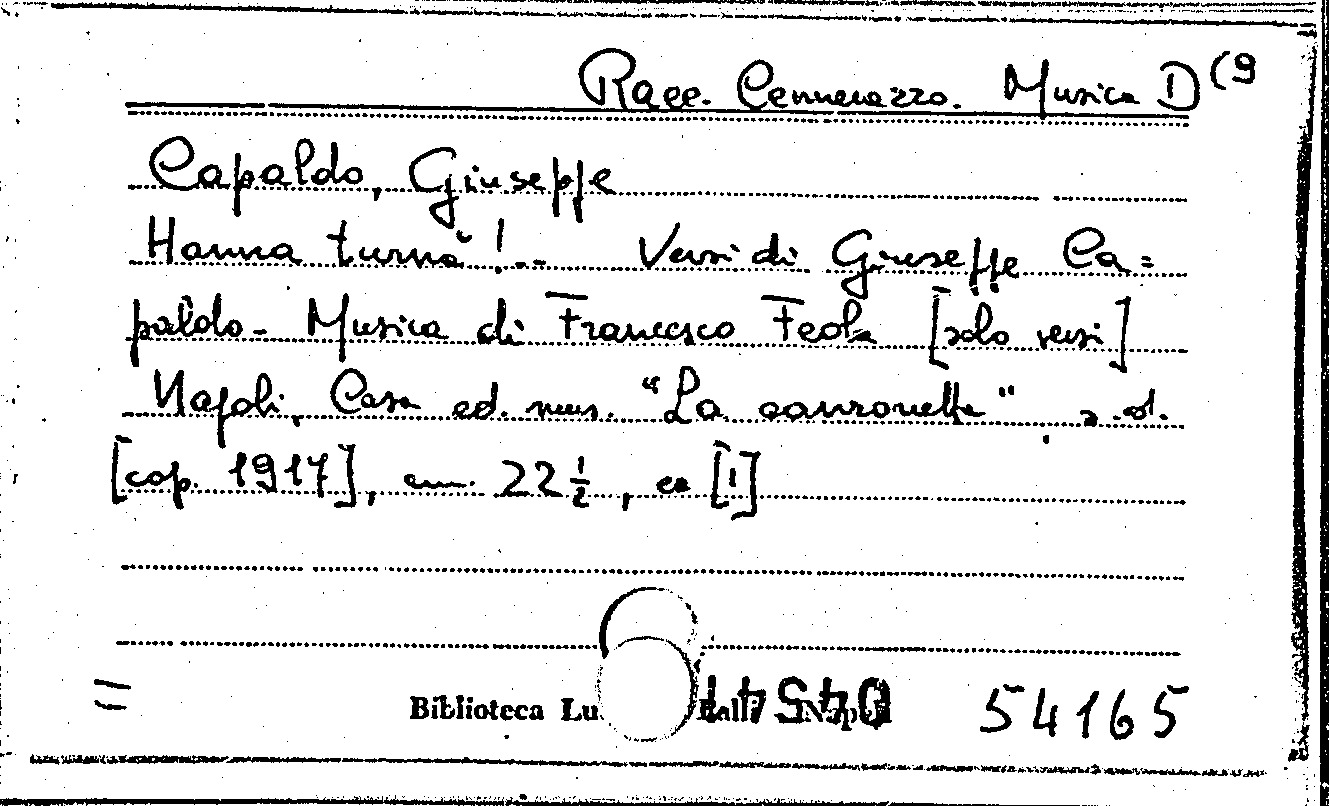 Racc. Cennerazzo. Musica D(9
Capaldo, Giuseppe
Hanna turnà!.. Versi di Giuseppe Ca=
paldo- Musica di Francesco Feola [solo versi]
Napoli, Casa ed. mus. "La canzonetta", s.d.
[cop. 1917], cm. 22½, cc [1]
Biblioteca Lu
54165